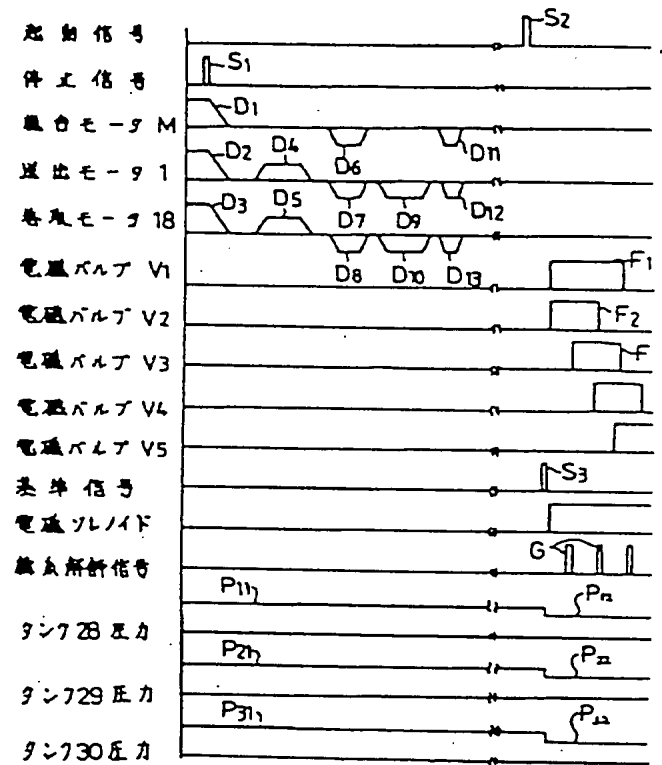 起動信号 S2
停止信号 S1
機台モータM D1 D6 D11
送出モータ1 D2 D4 D7 D9 D12
巻取モータ18 D3 D5 D8 D10 D13
電磁バルブV1 F1
電磁バルブV2 F2
電磁バルブV3 F
電磁バルブV4
電磁バルブV5
基準信号 S3
電磁ソレノイド
緯糸解舒信号 G
P11 P12
タンク28圧力
P21 P22
タンク29圧力
P31 P32
タンク30圧力